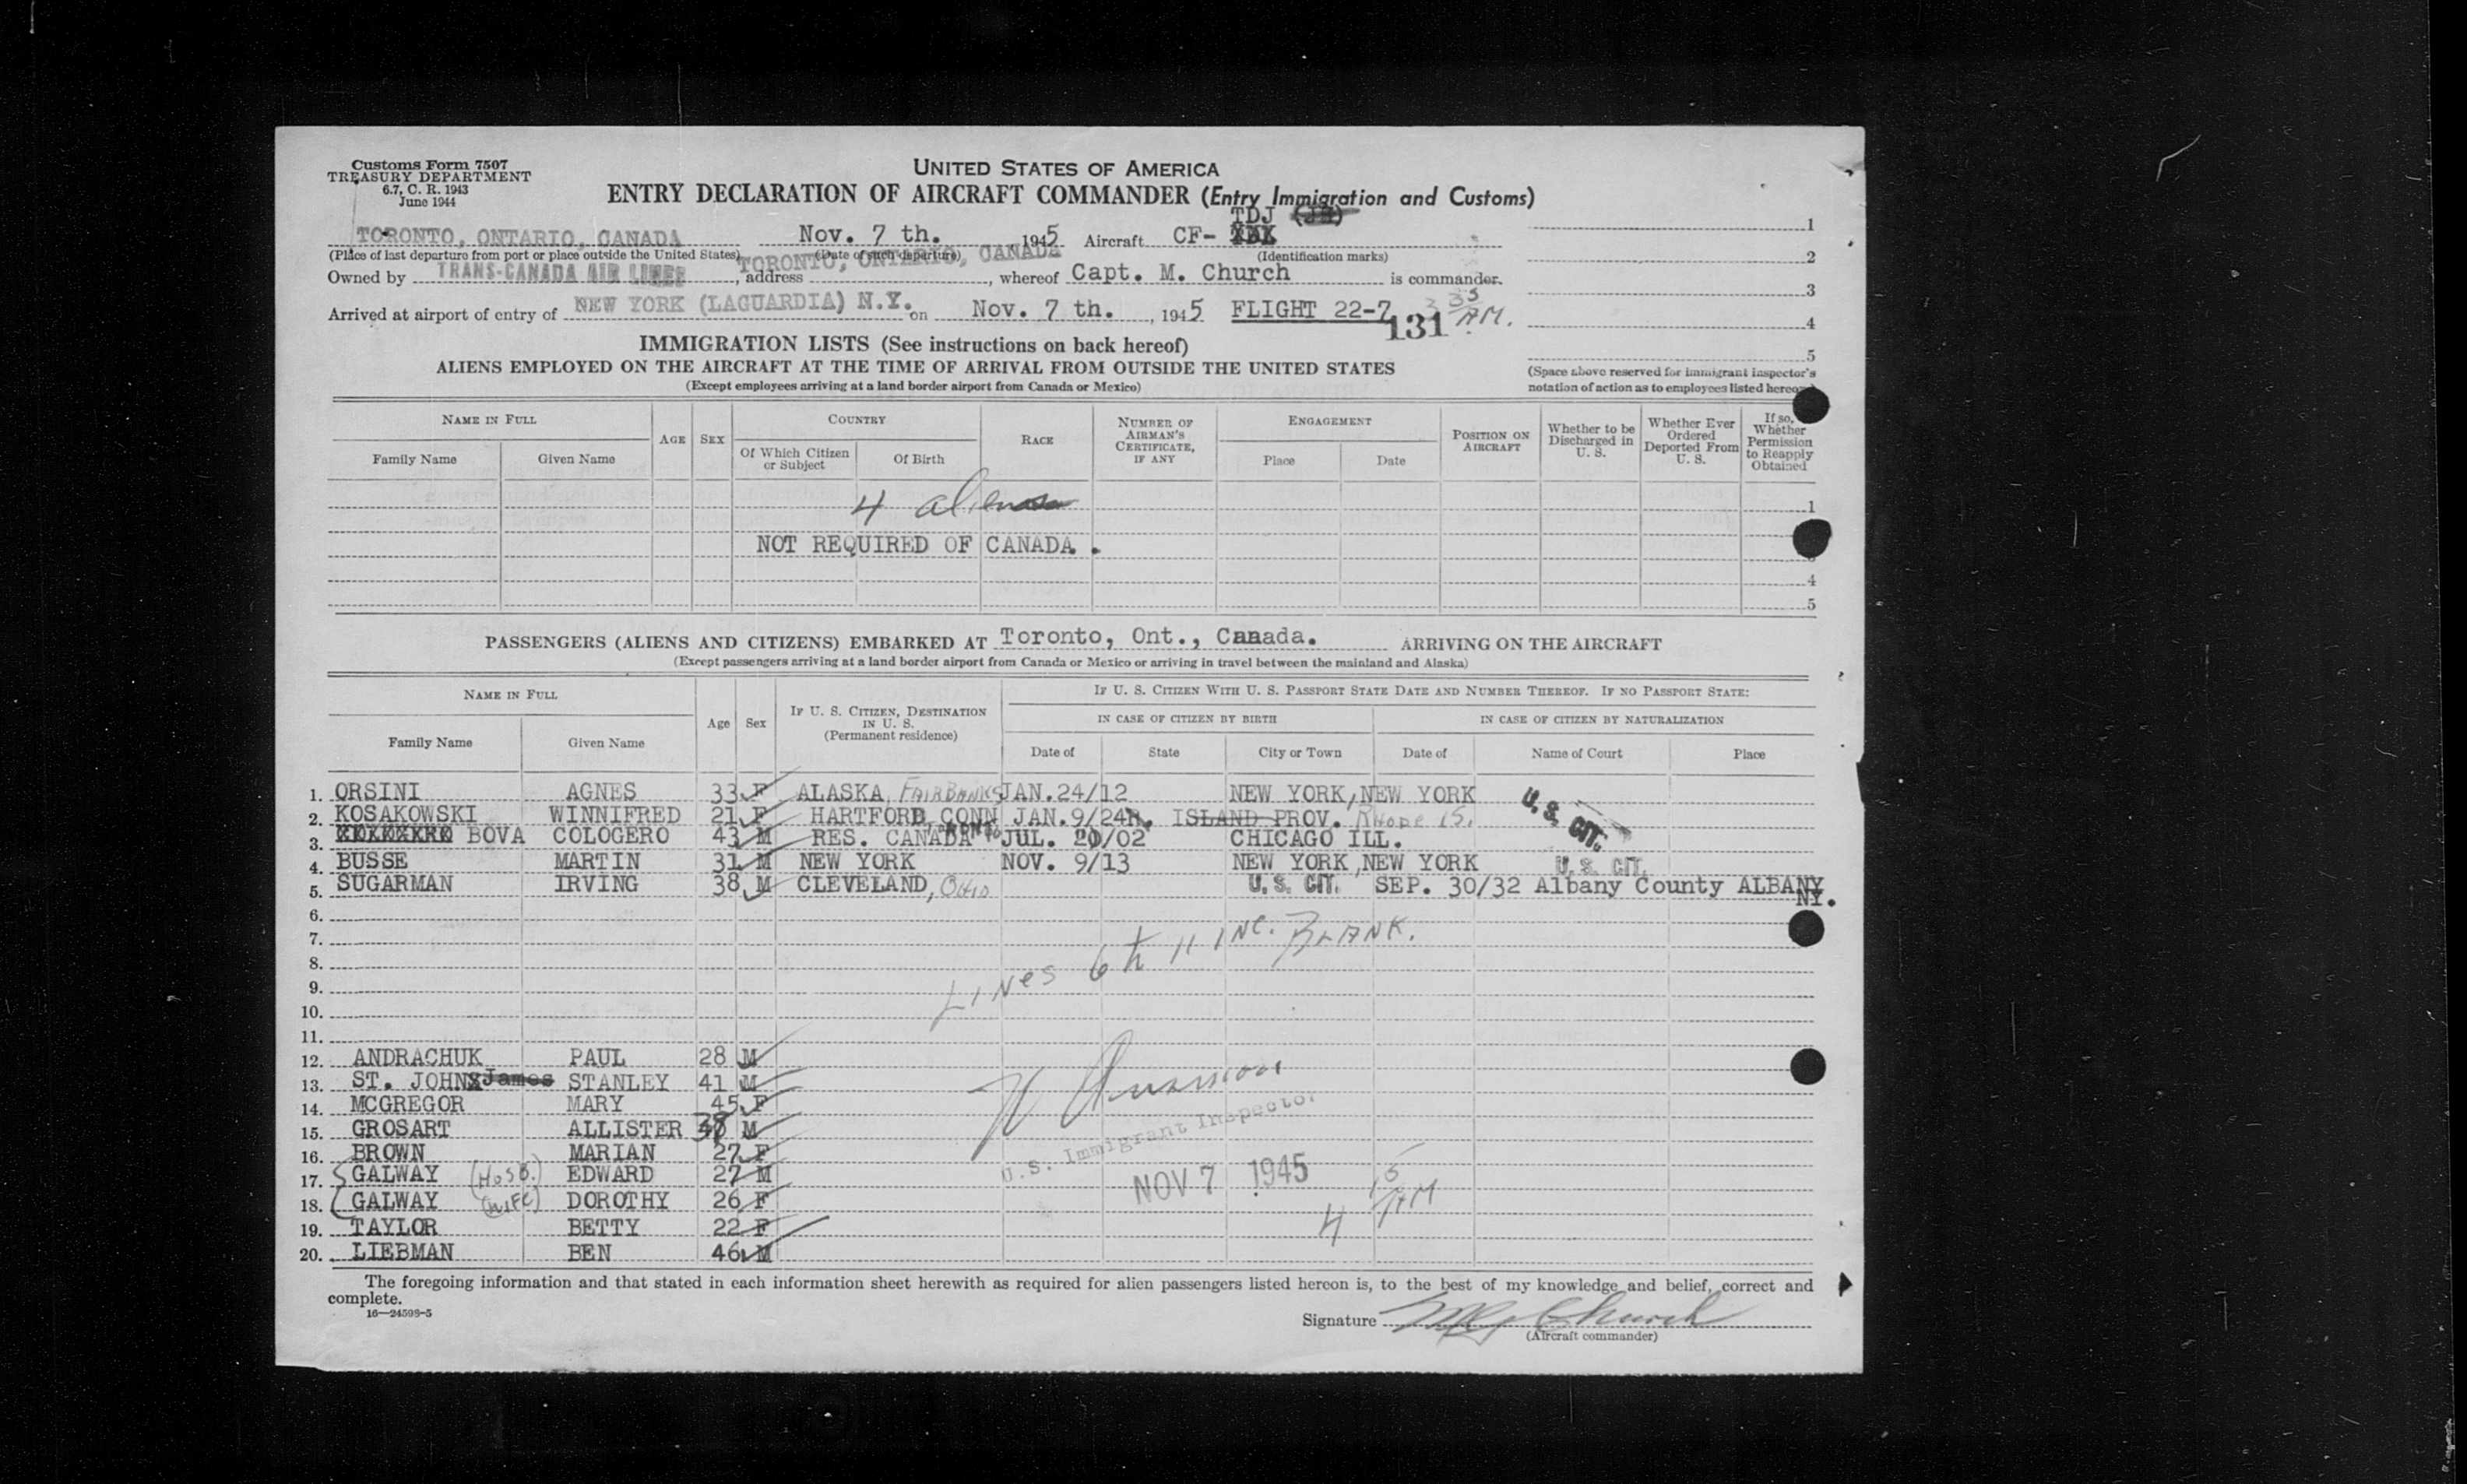 Customs Form 7507
TREASURY DEPARTMENT
6.7, C. R. 1943
June 1944
UNITED STATES OF AMERICA
ENTRY DECLARATION OF AIRCRAFT COMMANDER (Entry Immigration and Customs)
TDJ
TORONTO, ONTARIO, CANADA Nov. 7 th. , 1945 Aircraft CF-
(Place of last departure from port or place outside the United States) (Date of such departure) (Identification marks)
Owned by TRANS-CANADA AIR LINES, address TORONTO, ONTARIO, CANADA, whereof Capt. M. Church is commander.
Arrived at airport of entry of NEW YORK (LAGUARDIA) N.Y. on Nov. 7 th. , 1945 FLIGHT 22-7 3 35 AM.
131
1
2
3
4
5
(Space above reserved for immigrant inspector's
notation of action as to employees listed hereon)
IMMIGRATION LISTS (See instructions on back hereof)
ALIENS EMPLOYED ON THE AIRCRAFT AT THE TIME OF ARRIVAL FROM OUTSIDE THE UNITED STATES
(Except employees arriving at a land border airport from Canada or Mexico)
NAME IN FULL AGE SEX COUNTRY RACE NUMBER OF AIRMAN'S CERTIFICATE, IF ANY ENGAGEMENT POSITION ON AIRCRAFT Whether to be Discharged in U. S. Whether Ever Ordered Deported From U. S. If so, Whether Permission to Reapply Obtained
Family Name Given Name Of Which Citizen or Subject Of Birth Place Date
4 aliens 1
NOT REQUIRED OF CANADA .
4
5
PASSENGERS (ALIENS AND CITIZENS) EMBARKED AT Toronto, Ont., Canada. ARRIVING ON THE AIRCRAFT
(Except passengers arriving at a land border airport from Canada or Mexico or arriving in travel between the mainland and Alaska)
NAME IN FULL Age Sex IF U. S. CITIZEN, DESTINATION IN U. S. (Permanent residence) IF U. S. CITIZEN WITH U. S. PASSPORT STATE DATE AND NUMBER THEREOF. IF NO PASSPORT STATE:
IN CASE OF CITIZEN BY BIRTH IN CASE OF CITIZEN BY NATURALIZATION
Family Name Given Name Date of State City or Town Date of Name of Court Place
1. ORSINI AGNES 33 F ALASKA FAIRBANKS JAN.24/12 NEW YORK, NEW YORK
2. KOSAKOWSKI WINNIFRED 21 F HARTFORD, CONN JAN. 9/24 ISLAND PROV. Rhode IS. U. S. CIT.
3. BOVA COLOGERO 43 M RES. CANADA TORONTO JUL. 20/02 CHICAGO ILL.
4. BUSSE MARTIN 31 M NEW YORK NOV. 9/13 NEW YORK, NEW YORK U. S. CIT.
5. SUGARMAN IRVING 38 M CLEVELAND, Ohio U. S. CIT. SEP. 30/32 Albany County ALBANY
NY.
6.
7.
8.
9.
10.
11.
Lines 6 to 11 INC. BLANK.
12. ANDRACHUK PAUL 28 M
13. ST. JOHN James STANLEY 41 M
14. MCGREGOR MARY 45 F
15. GROSART ALLISTER M
16. BROWN MARIAN 27 F
17. GALWAY (HUSB.) EDWARD 27 M
18. GALWAY (WIFE) DOROTHY 26 F
19. TAYLOR BETTY 22 F
20. LIEBMAN BEN 46 M
U. S. Immigrant Inspector
NOV 7 1945
4 15 AM
The foregoing information and that stated in each information sheet herewith as required for alien passengers listed hereon is, to the best of my knowledge and belief, correct and
complete.
16—24598-5
Signature M Church
(Aircraft commander)